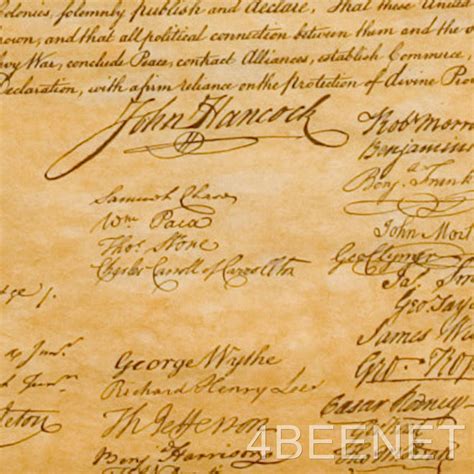 olonies, solemnly publish and declare, That these United
rown, and that all political connection between them and the
vy War, conclude Peace, contract Alliances, establish Commerce,
Declaration, with a firm reliance on the protection of divine Pro
John Hancock
Robt Morr
Benjamin
Benj. Frank
Samuel Chase
Wm Paca
Thos. Stone
Charles Carroll of Carrollton
John Mort
Geo Clymer
Ja. Sm
Geo. Tay
James W
Geo. Ro
George Wythe
Richard Henry Lee
Th Jefferson
Benj. Harrison
Caesar Rodney
4BEENET